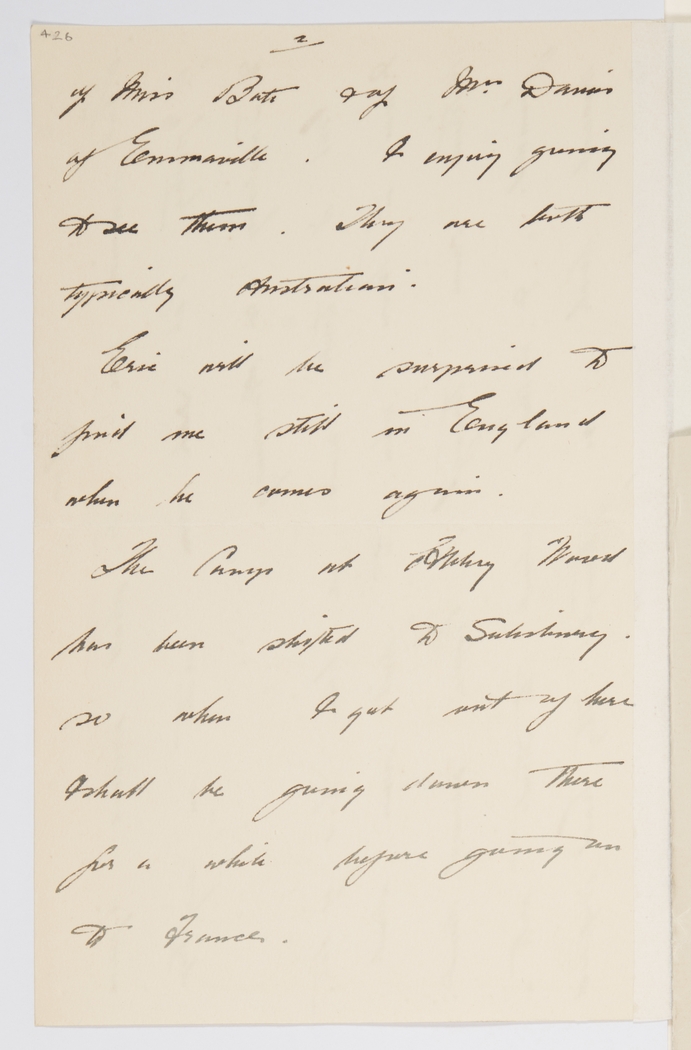 426
2
of Miss Bate & of Mrs Davis
of Emmaville. I enjoy going
to see them. They are both
typically Australian.
Eric will be surprised to
find me still in England
when he comes again.
The Camp at Abbey Wood
has been shifted to Salisbury.
so when I get out of here
I shall be going down there
for a while before going on
to France.